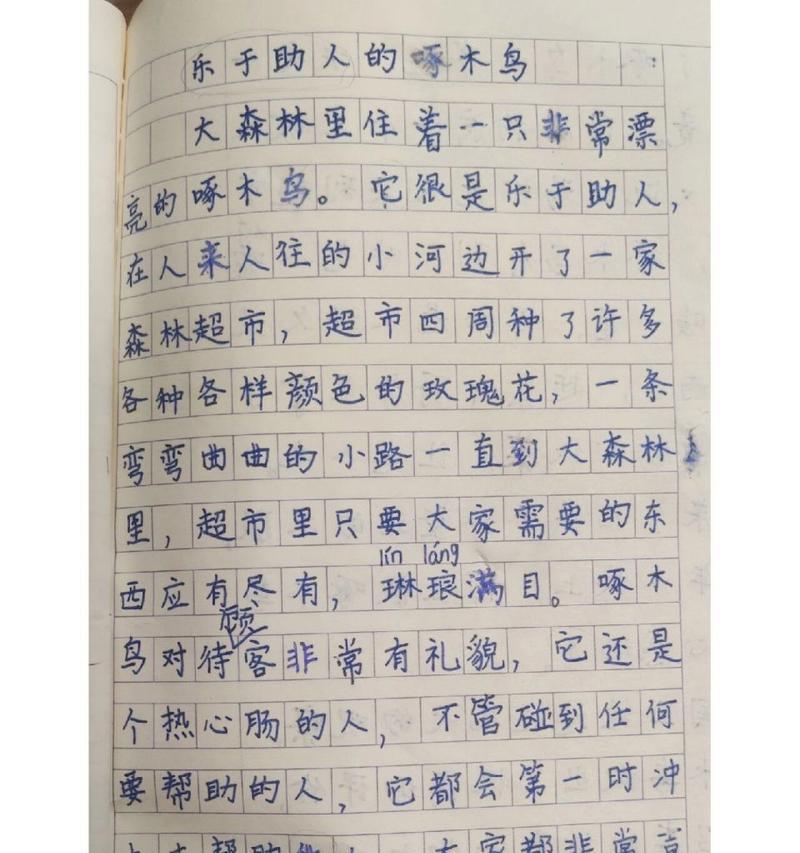 乐于助人的啄木鸟
大森林里住着一只非常漂
亮的啄木鸟。它很是乐于助人，
在人来人往的小河边开了一家
森林超市，超市四周种了许多
各种各样颜色的玫瑰花，一条
弯弯曲曲的小路一直到大森林
里，超市里只要大家需要的东
lín láng
西应有尽有，琳琅满目。啄木
鸟对待顾客非常有礼貌，它还是
个热心肠的人，不管碰到任何
要帮助的人，它都会第一时冲
帮助
大家都非常喜